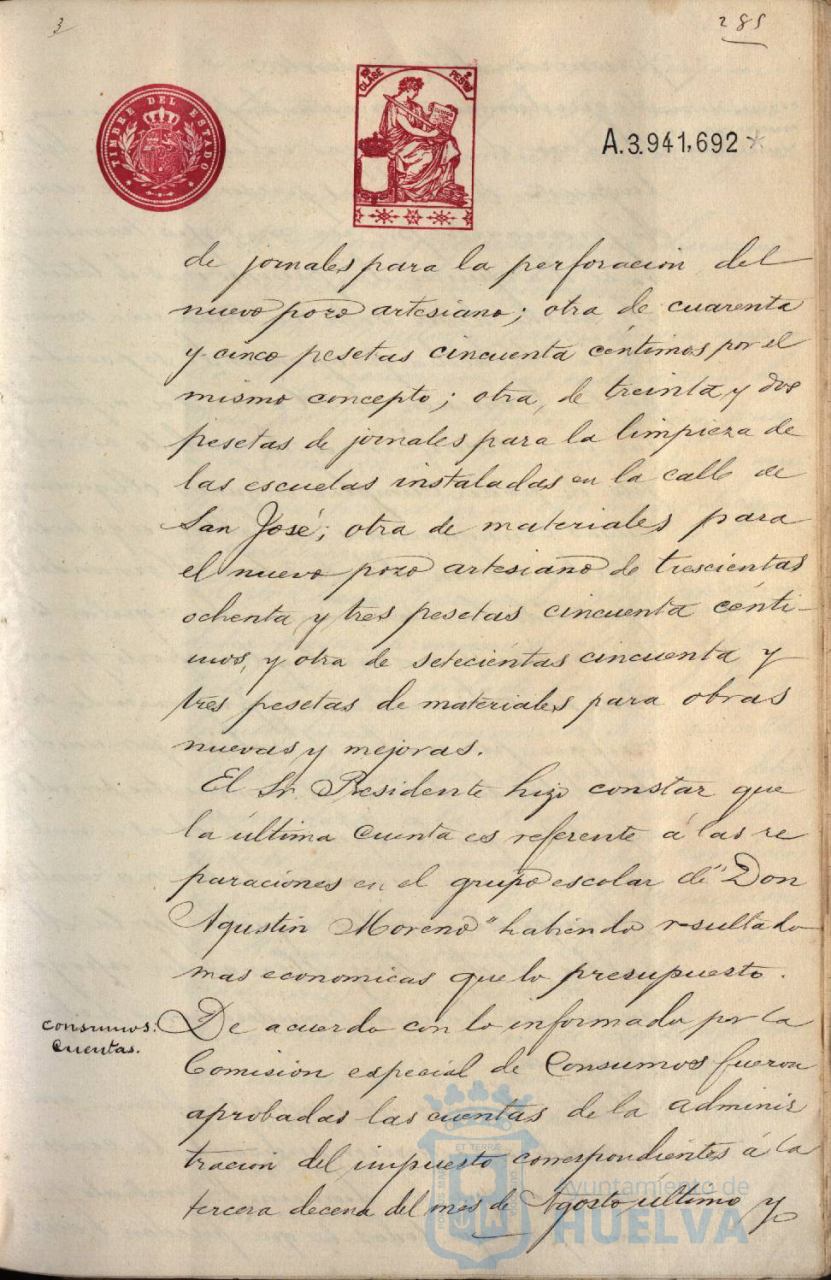 3
285
TIMBRE DEL ESTADO
CLASE
A.3.941,692
de jornales para la perforacion del
nuevo pozo artesiano; otra de cuarenta
y cinco pesetas cincuenta céntimos por el
mismo concepto; otra, de treinta y dos
pesetas de jornales para la limpieza de
las escuelas instaladas en la calle de
San José; otra de materiales para
el nuevo pozo artesiano de trescientas
ochenta y tres pesetas cincuenta cénti-
mos, y otra de setecientas cincuenta y
tres pesetas de materiales para obras
nuevas y mejoras.
El Sr. Presidente hizo constar que
la última cuenta es referente á las re
paraciones en el grupo escolar de "Don
Agustin Moreno" habiendo resultado
mas economicas que lo presupuesto.
Consumos.
Cuentas.
De acuerdo con lo informado por la
Comisión especial de Consumos fueron
aprobadas las cuentas de la adminis
tración del impuesto correspondientes á la
tercera decena del mes de Agosto último y
Ayuntamiento de
HUELVA